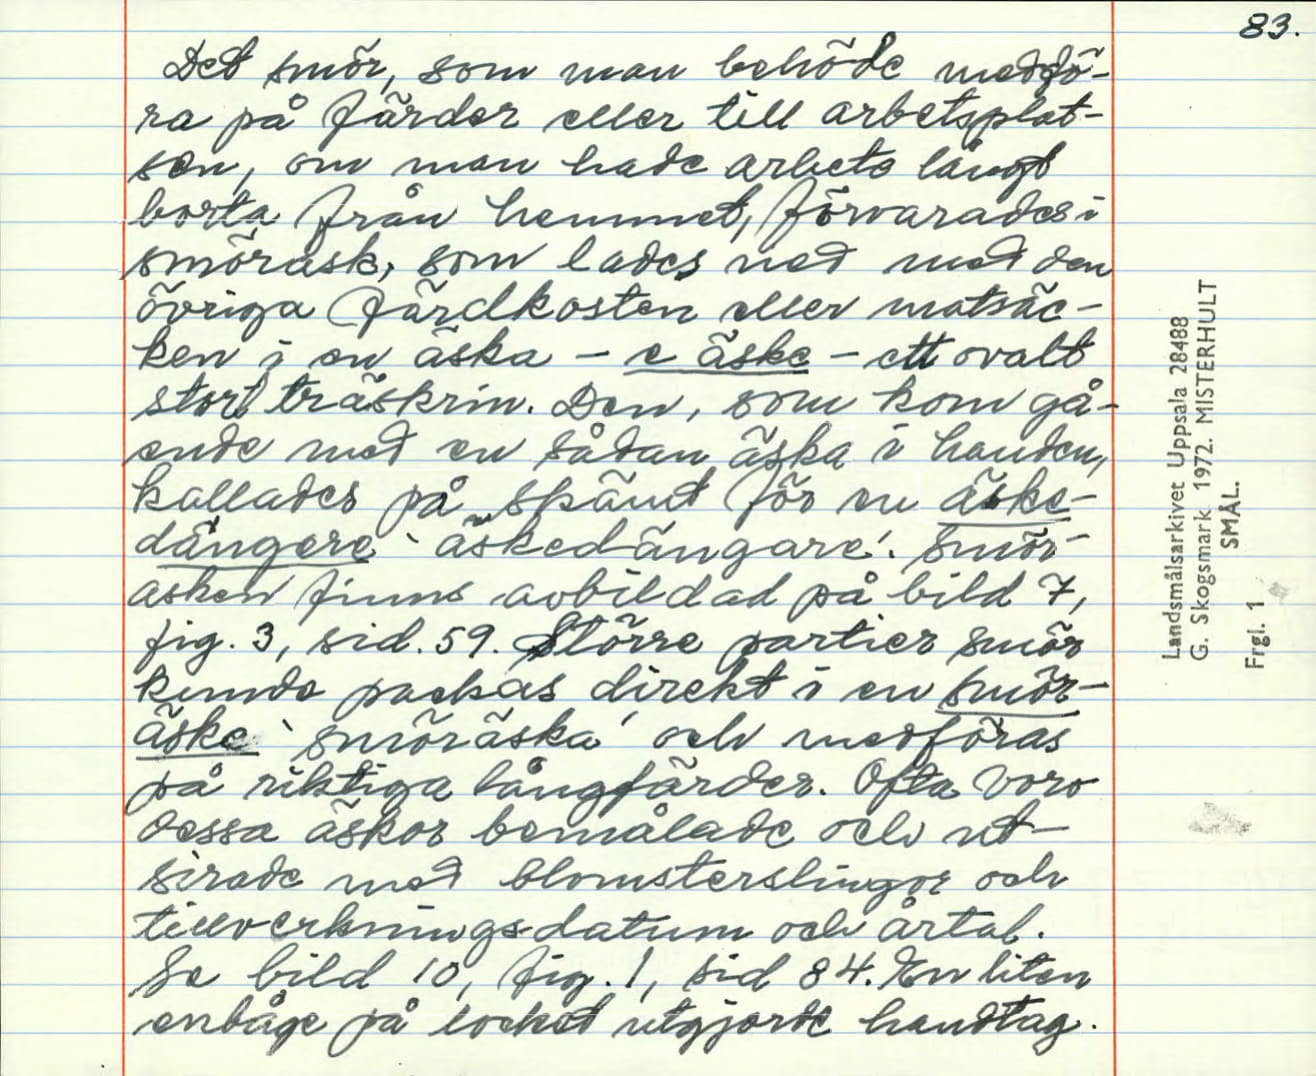 83.
Det smör, som man behövde medfö-
ra på färder eller till arbetsplat-
sen, om man hade arbete långt
borta från hemmet, förvarades i
smörask, som lades ned med den
övriga färdkosten eller matsäc-
ken i en äska – e äske – ett ovalt
stort träskrin. Den, som kom gå-
ende med en sådan äska i handen,
kallades på skämt för en äske-
dängere 'äskedängare'. Smör-
asken finns avbildad på bild 7,
fig. 3, sid. 59. Större partier smör
kunde packas direkt i en smör-
äske 'smöräska' och medföras
på riktiga långfärder. Ofta voro
dessa äskor bemålade och ut-
sirade med blomsterslingor och
tillverkningsdatum och årtal.
Se bild 10, fig. 1, sid 84. En liten
enbåge på locket utgjorde handtag.
Landsmålsarkivet Uppsala 28488
G. Skogsmark 1972. MISTERHULT
SMÅL.
Frgl. 1